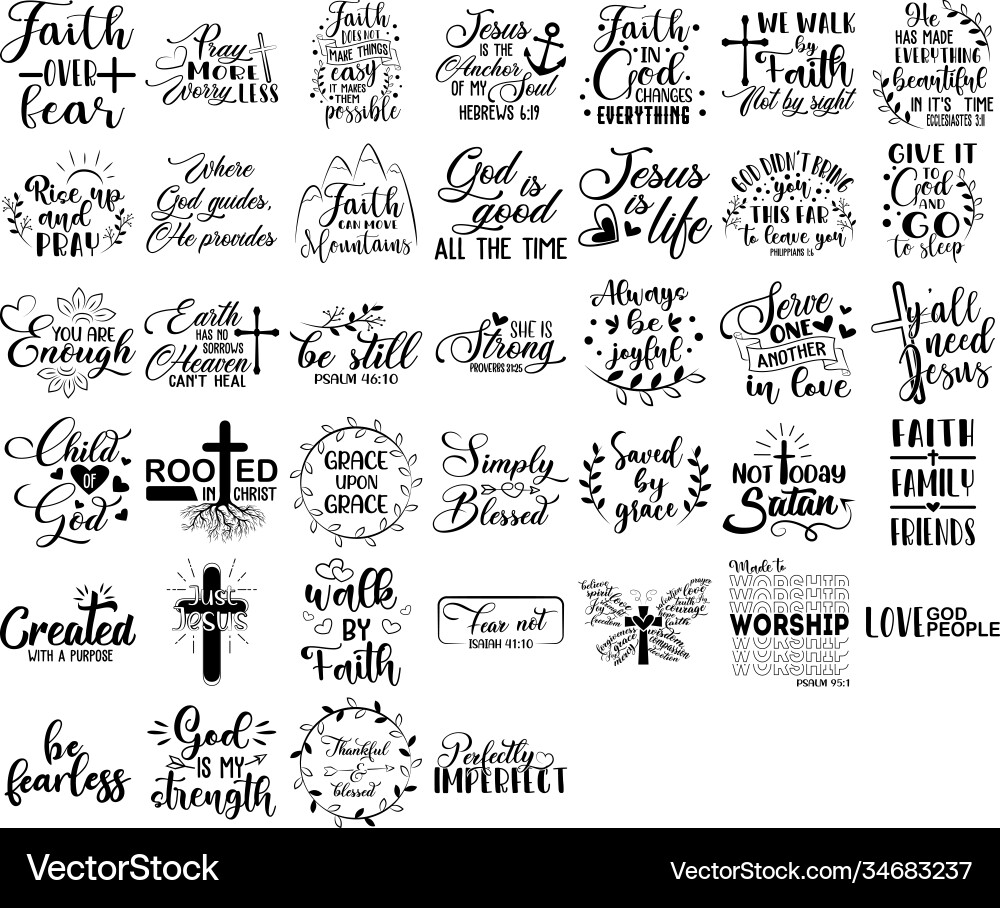 Faith
OVER
fear
Pray
MORE
Worry LESS
Faith
DOES NOT
MAKE THINGS
easy
IT MAKES
THEM
possible
Jesus
IS THE
Anchor
OF MY Soul
HEBREWS 6:19
Faith
IN
God
CHANGES
EVERYTHING
WE WALK
by
Faith
Not by sight
He
HAS MADE
EVERYTHING
beautiful
IN IT'S TIME
ECCLESIASTES 3:11
Rise up
and
PRAY
Where
God guides,
He provides
Faith
CAN MOVE
Mountains
God is
good
ALL THE TIME
Jesus
is
life
GOD DIDN'T BRING
you
THIS FAR
to leave you
PHILIPPIANS 1:6
GIVE IT
TO
God
AND
GO
to sleep
YOU ARE
Enough
Earth
HAS NO
SORROWS
Heaven
CAN'T HEAL
be still
PSALM 46:10
SHE IS
Strong
PROVERBS 31:25
Always
be
joyful
Serve
ONE
ANOTHER
in love
y'all
need
Jesus
Child
OF
God
ROOTED
IN CHRIST
GRACE
UPON
GRACE
Simply
Blessed
Saved
by
grace
NOT TODAY
Satan
FAITH
FAMILY
FRIENDS
Created
WITH A PURPOSE
Just
Jesus
walk
BY
Faith
Fear not
ISAIAH 41:10
believe
spirit
love
prayer
love
truth
courage
hope
faith
freedom
forgiveness
wisdom
grace
compassion
mercy
devotion
Made to
WORSHIP
WORSHIP
WORSHIP
WORSHIP
WORSHIP
PSALM 95:1
LOVE GOD
PEOPLE
be
fearless
God
IS MY
strength
Thankful
&
blessed
Perfectly
IMPERFECT
VectorStock
VectorStock.com/34683237